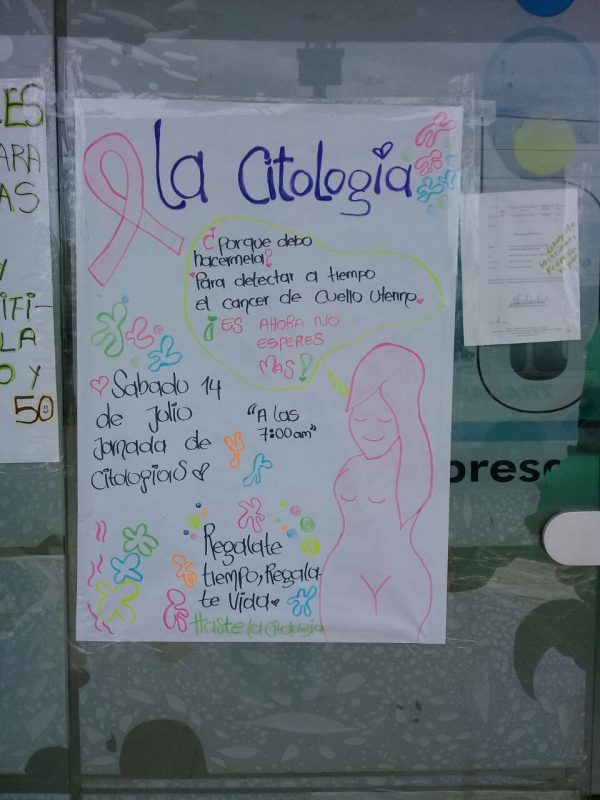 ES
ARA
AS
Y
IFI-
LA
O Y
50
La Citología
¿Porque debo
hacermela?
Para detectar a tiempo
el cancer de cuello uterino.
¡ES AHORA NO
ESPERES
MAS!
Sabado 14
de Julio
Jornada de
Citologias
"A las
7:00am"
Regalate
tiempo, Regala
te Vida
Haste la citologia
presc